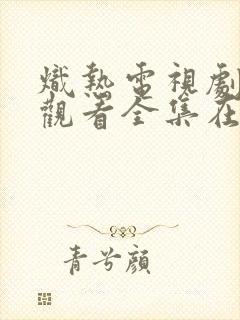 熾熱電視劇
觀看全集在
青兮顔